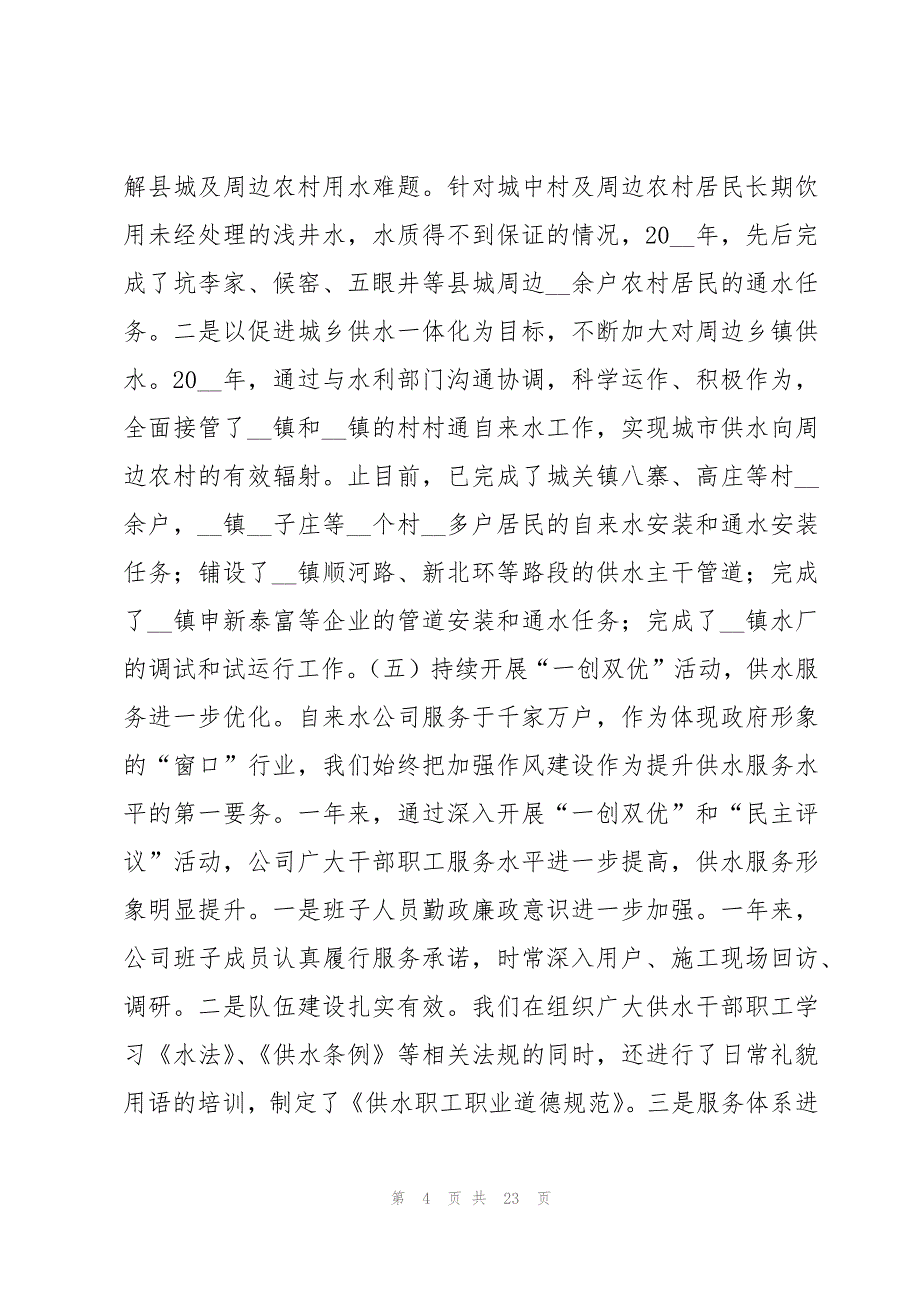 解县城及周边农村用水难题。针对城中村及周边农村居民长期饮
用未经处理的浅井水，水质得不到保证的情况，20__年，先后完
成了坑李家、候窑、五眼井等县城周边__余户农村居民的通水任
务。二是以促进城乡供水一体化为目标，不断加大对周边乡镇供
水。20__年，通过与水利部门沟通协调，科学运作、积极作为，
全面接管了__镇和__镇的村村通自来水工作，实现城市供水向周
边农村的有效辐射。止目前，已完成了城关镇八寨、高庄等村__
余户，__镇__子庄等__个村__多户居民的自来水安装和通水安装
任务；铺设了__镇顺河路、新北环等路段的供水主干管道；完成
了__镇申新泰富等企业的管道安装和通水任务；完成了__镇水厂
的调试和试运行工作。（五）持续开展“一创双优”活动，供水服
务进一步优化。自来水公司服务于千家万户，作为体现政府形象
的“窗口”行业，我们始终把加强作风建设作为提升供水服务水
平的第一要务。一年来，通过深入开展“一创双优”和“民主评
议”活动，公司广大干部职工服务水平进一步提高，供水服务形
象明显提升。一是班子人员勤政廉政意识进一步加强。一年来，
公司班子成员认真履行服务承诺，时常深入用户、施工现场回访、
调研。二是队伍建设扎实有效。我们在组织广大供水干部职工学
习《水法》、《供水条例》等相关法规的同时，还进行了日常礼貌
用语的培训，制定了《供水职工职业道德规范》。三是服务体系进
第 4 页 共 23 页